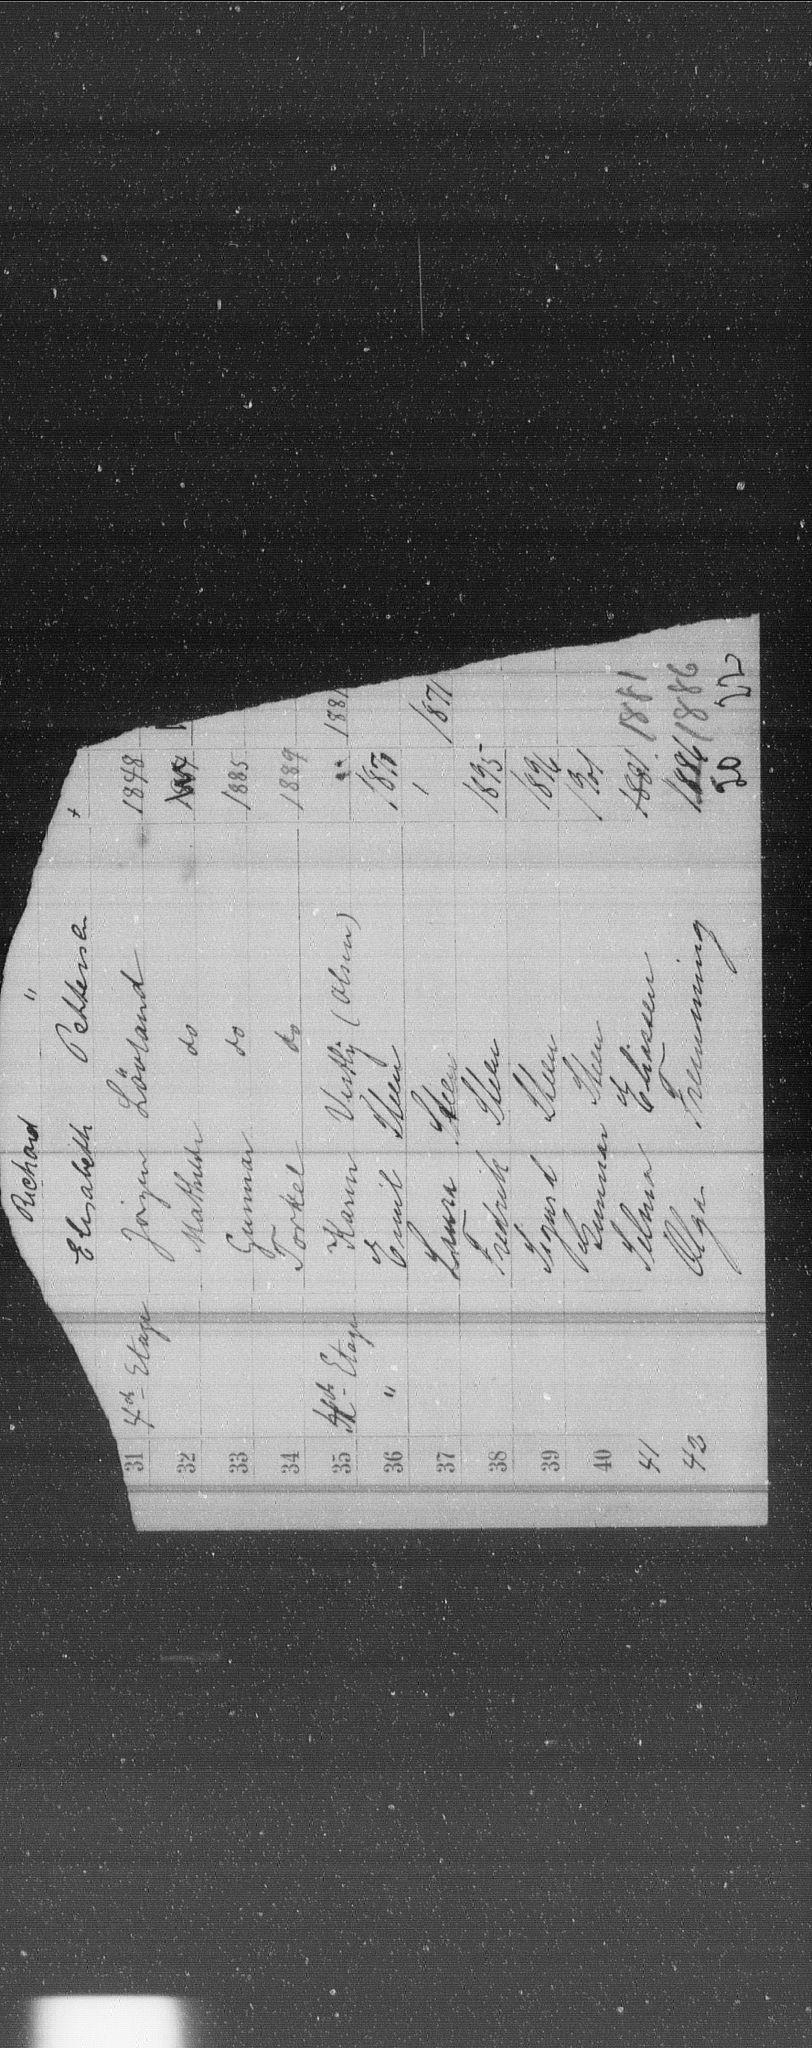 Richard "
Elisabeth Pettersen +
31 4de Etage Jörgen Lövland 1848
32 Mathilde do
33 Gunnar do 1885
34 Torkel do 1889
35 4de Etage Karen Vestly (Olsen) " 1881
36 " Emil Steen 1870
37 Laura Steen 1 1871
38 Fredrik Steen 1895
39 Sigurd Steen 1896
40 Gunnar Steen 1901
41 Selma Eliassen 1881 1881
43 Olga Flemming 1886 1886
20 22